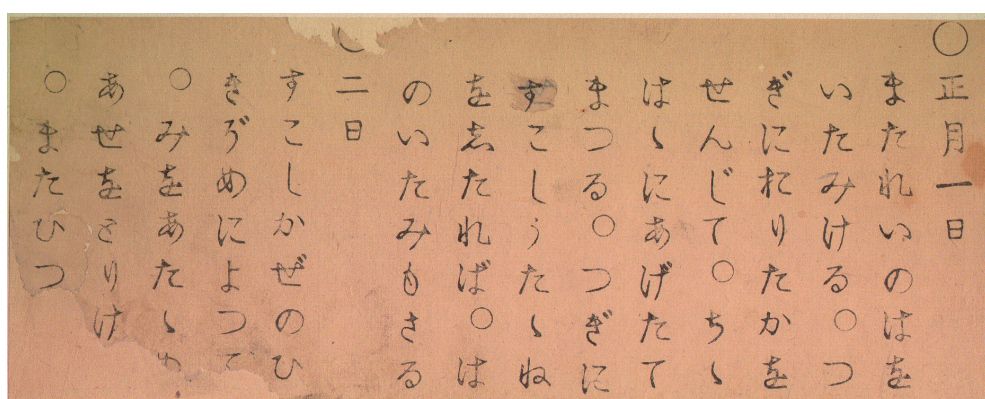 ○正月一日
またれいのはを
いたみける○つ
ぎにおりたかを
せんじて○ちゝ
はゝにあげたて
まつる○つぎに
すこしうたゝね
をしたれば○は
のいたみもさる
○二日
すこしかぜのひ
きぞめによつて
○みをあたゝめ
あせをとりけ
○またひつ